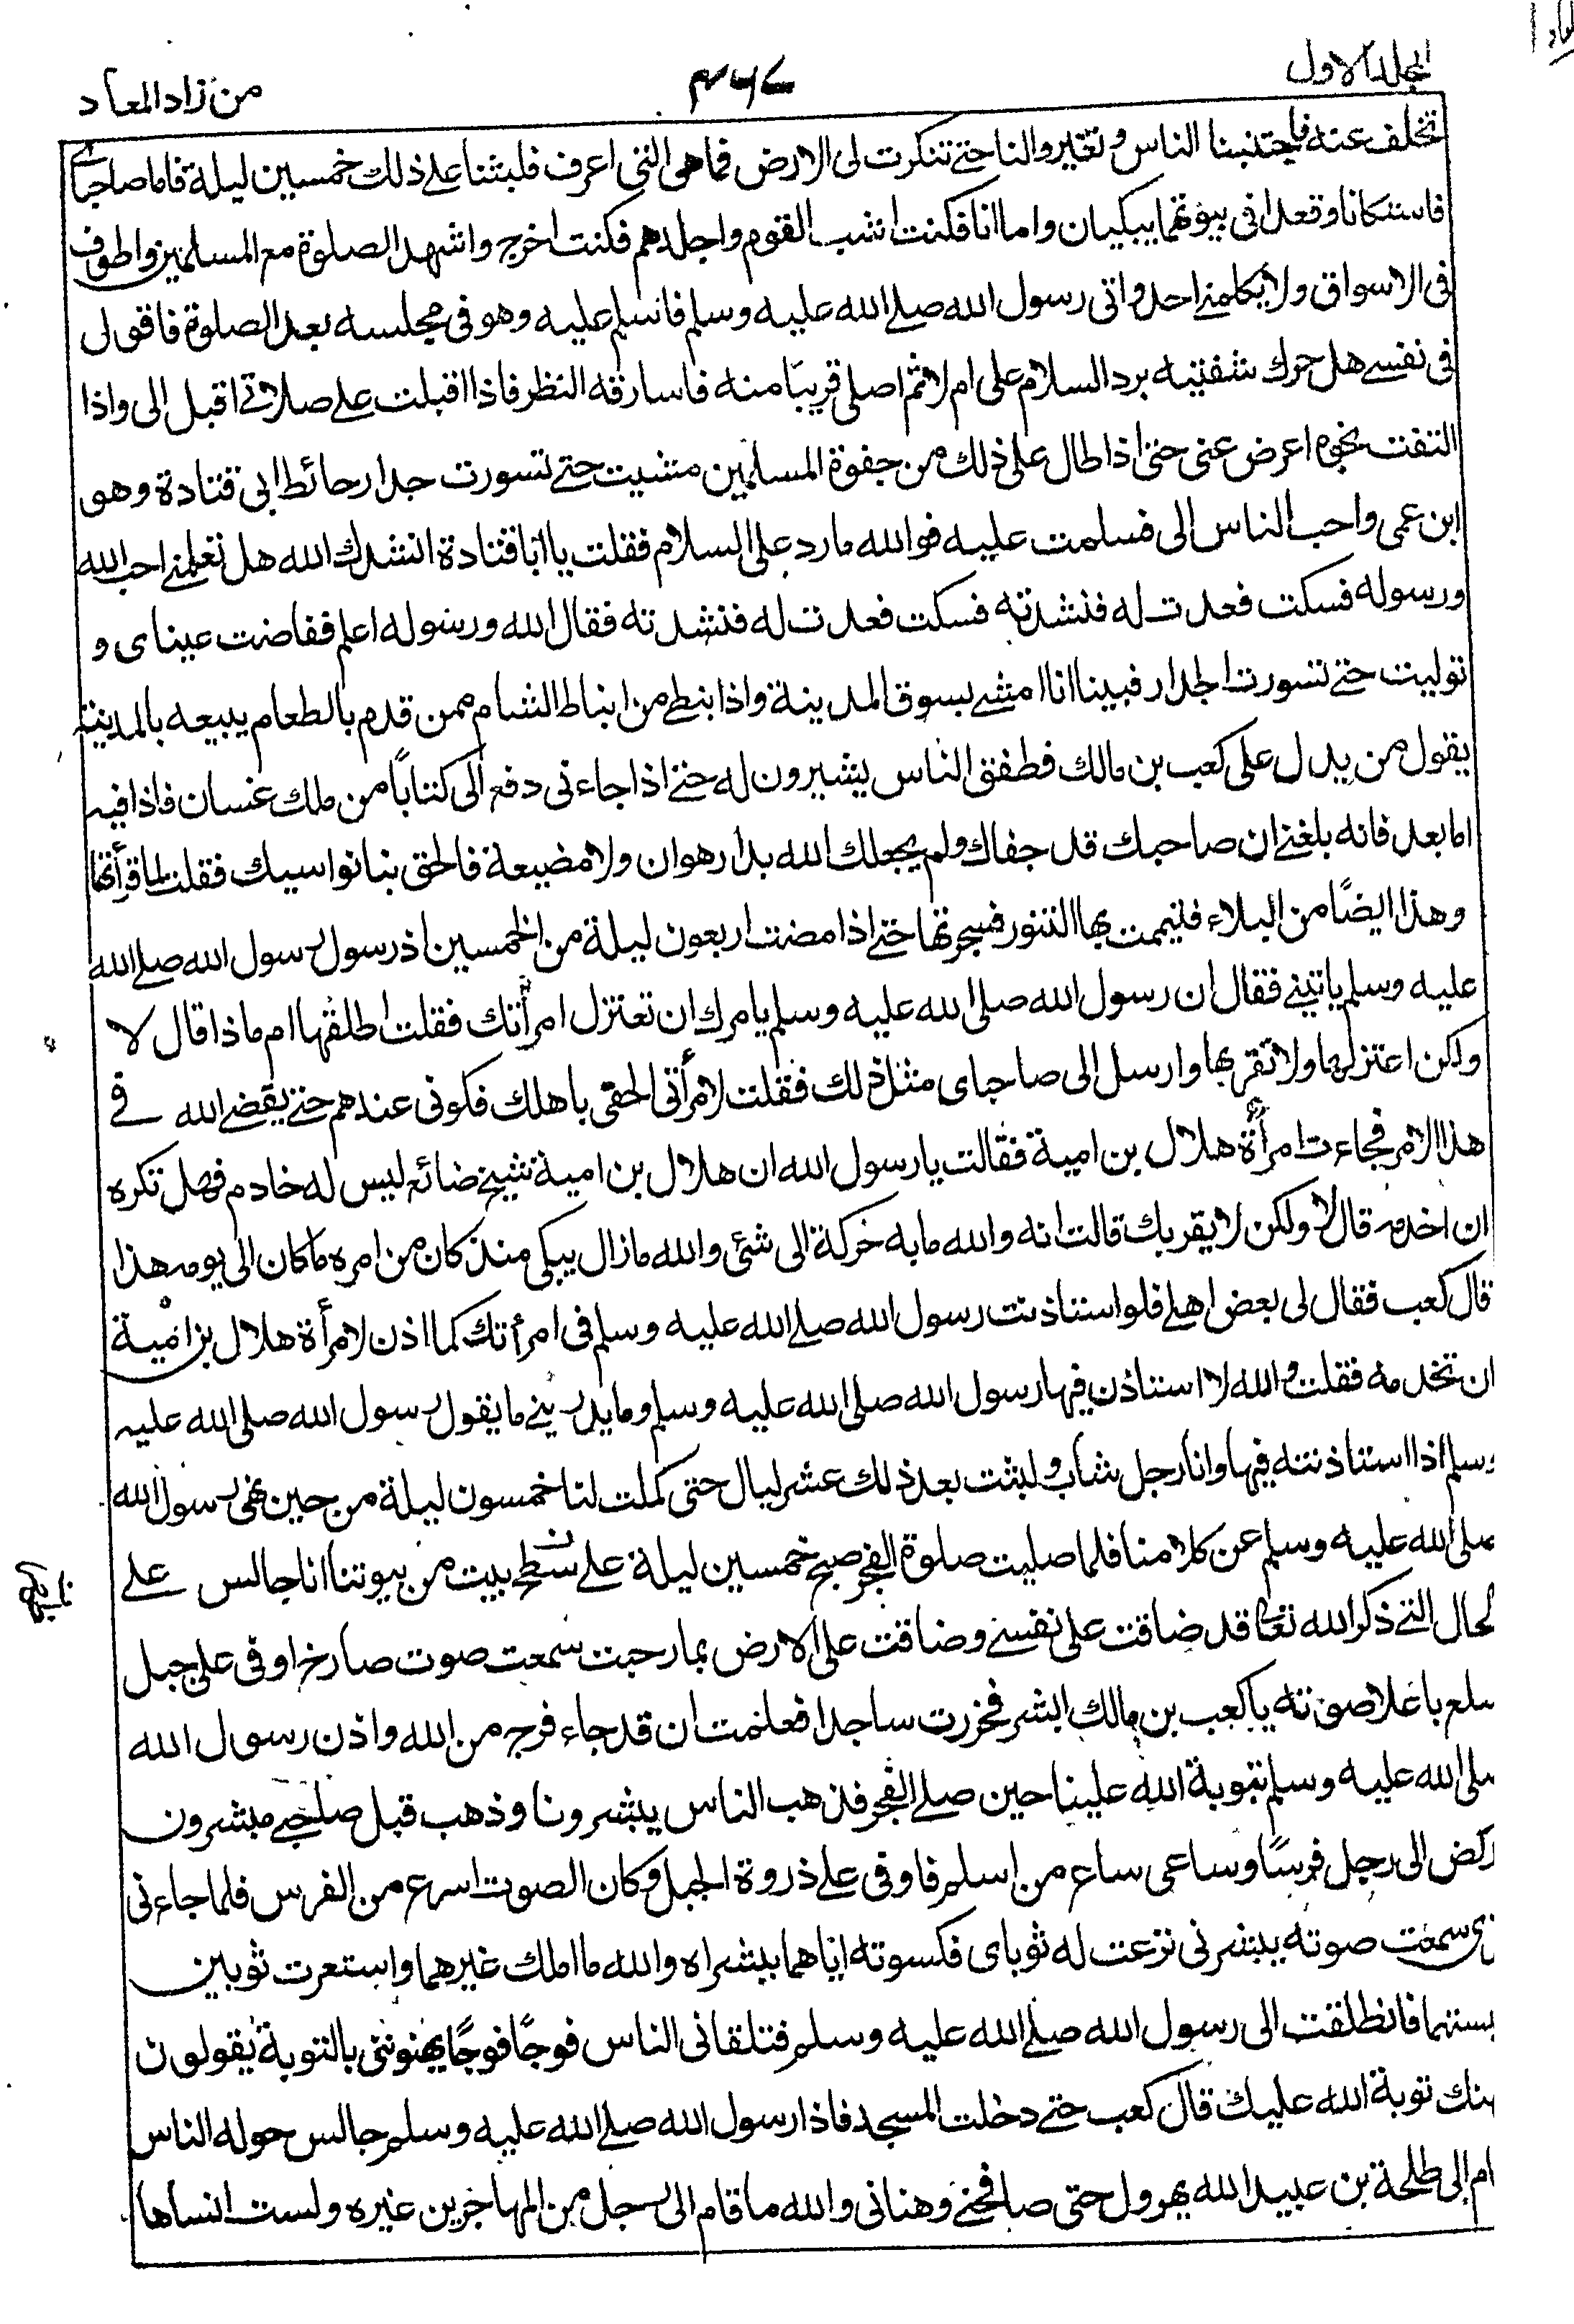 المجلد الاول
۴۶۷
من زاد المعاد
تخلف عنه فاجتنبنا الناس وتغيروا لنا حتى تنكرت لى الارض فما هى التى اعرف فلبثنا على ذلك خمسين ليلة فاما صاحباى
فاستكانا وقعدا فى بيوتهما يبكيان واما انا فكنت اشب القوم واجلدهم فكنت اخرج واشهد الصلوة مع المسلمين واطوف
فى الاسواق ولا يكلمنى احد واتى رسول الله صلى الله عليه وسلم فاسلم عليه وهو فى مجلسه بعد الصلوة فاقول
فى نفسى هل حرك شفتيه برد السلام على ام لا ثم اصلى قريبًا منه فاسارقه النظر فاذا اقبلت على صلاتى اقبل الى واذا
التفت نحوه اعرض عنى حتى اذا طال على ذلك من جفوة المسلمين مشيت حتى تسورت جدار حائط ابى قتادة وهو
ابن عمى واحب الناس الى فسلمت عليه فوالله ما رد على السلام فقلت يا ابا قتادة انشدك الله هل تعلمنى احب الله
ورسوله فسكت فعدت له فنشدته فسكت فعدت له فنشدته فقال الله ورسوله اعلم ففاضت عيناى و
توليت حتى تسورت الجدار فبينا انا امشى بسوق المدينة واذا نبطى من انباط الشام ممن قدم بالطعام يبيعه بالمدينة
يقول من يدل على كعب بن مالك فطفق الناس يشيرون له حتى اذا جاءنى دفع الى كتابًا من ملك غسان فاذا فيه
اما بعد فانه بلغنى ان صاحبك قد جفاك ولم يجعلك الله بدار هوان ولا مضيعة فالحق بنا نواسيك فقلت لما قرأتها
وهذا ايضًا من البلاء فتيممت بها التنور فسجرتها حتى اذا مضت اربعون ليلة من الخمسين اذ رسول رسول الله صلى الله
عليه وسلم ياتينى فقال ان رسول الله صلى الله عليه وسلم يامرك ان تعتزل امرأتك فقلت اطلقها ام ماذا قال لا
ولكن اعتزلها ولا تقربها وارسل الى صاحباى مثل ذلك فقلت لامرأتى الحقى باهلك فكونى عندهم حتى يقضى الله فى
هذا الامر فجاءت امرأة هلال بن امية فقالت يا رسول الله ان هلال بن امية شيخ ضائع ليس له خادم فهل تكره
ان اخدمه قال لا ولكن لا يقربك قالت انه والله ما به حركة الى شئى والله ما زال يبكى منذ كان من امره ما كان الى يومه هذا
قال كعب فقال لى بعض اهلى فلو استاذنت رسول الله صلى الله عليه وسلم فى امرأتك كما اذن لامرأة هلال بن امية
ان تخدمه فقلت والله لا استاذن فيها رسول الله صلى الله عليه وسلم وما يدرينى ما يقول رسول الله صلى الله عليه
وسلم اذا استاذنته فيها وانا رجل شاب ولبثت بعد ذلك عشر ليال حتى كملت لنا خمسون ليلة من حين نهى رسول الله
صلى الله عليه وسلم عن كلامنا فلما صليت صلوة الفجر صبح خمسين ليلة على سطح بيت من بيوتنا انا جالس على
الحال التى ذكر الله تعالى قد ضاقت على نفسى وضاقت على الارض بما رحبت سمعت صوت صارخ اوفى على جبل
سلع باعلا صوته يا كعب بن مالك ابشر فخررت ساجدا فعلمت ان قد جاء فرج من الله واذن رسول الله
صلى الله عليه وسلم بتوبة الله علينا حين صلى الفجر فذهب الناس يبشروننا وذهب قبل صاحبى مبشرون
ركض الى رجل فرسًا وساعى ساع من اسلم فاوفى على ذروة الجبل وكان الصوت اسرع من الفرس فلما جاءنى
الذى سمعت صوته يبشرنى نزعت له ثوباى فكسوته اياهما ببشراه والله ما املك غيرهما واستعرت ثوبين
لبستهما فانطلقت الى رسول الله صلى الله عليه وسلم فتلقانى الناس فوجًا فوجًا يهنوننى بالتوبة يقولون
يهنك توبة الله عليك قال كعب حتى دخلت المسجد فاذا رسول الله صلى الله عليه وسلم جالس حوله الناس
قام الى طلحة بن عبيد الله يهرول حتى صافحنى وهنانى والله ما قام الى رجل من المهاجرين غيره ولست انساها